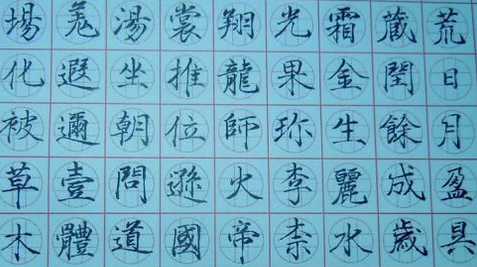 荒日月盈昃
蔵閏餘成歳
霜金生麗水
光果珎李柰
翔龍師火帝
裳推位遜國
湯坐朝問道
羌遐邇壹體
場化被草木